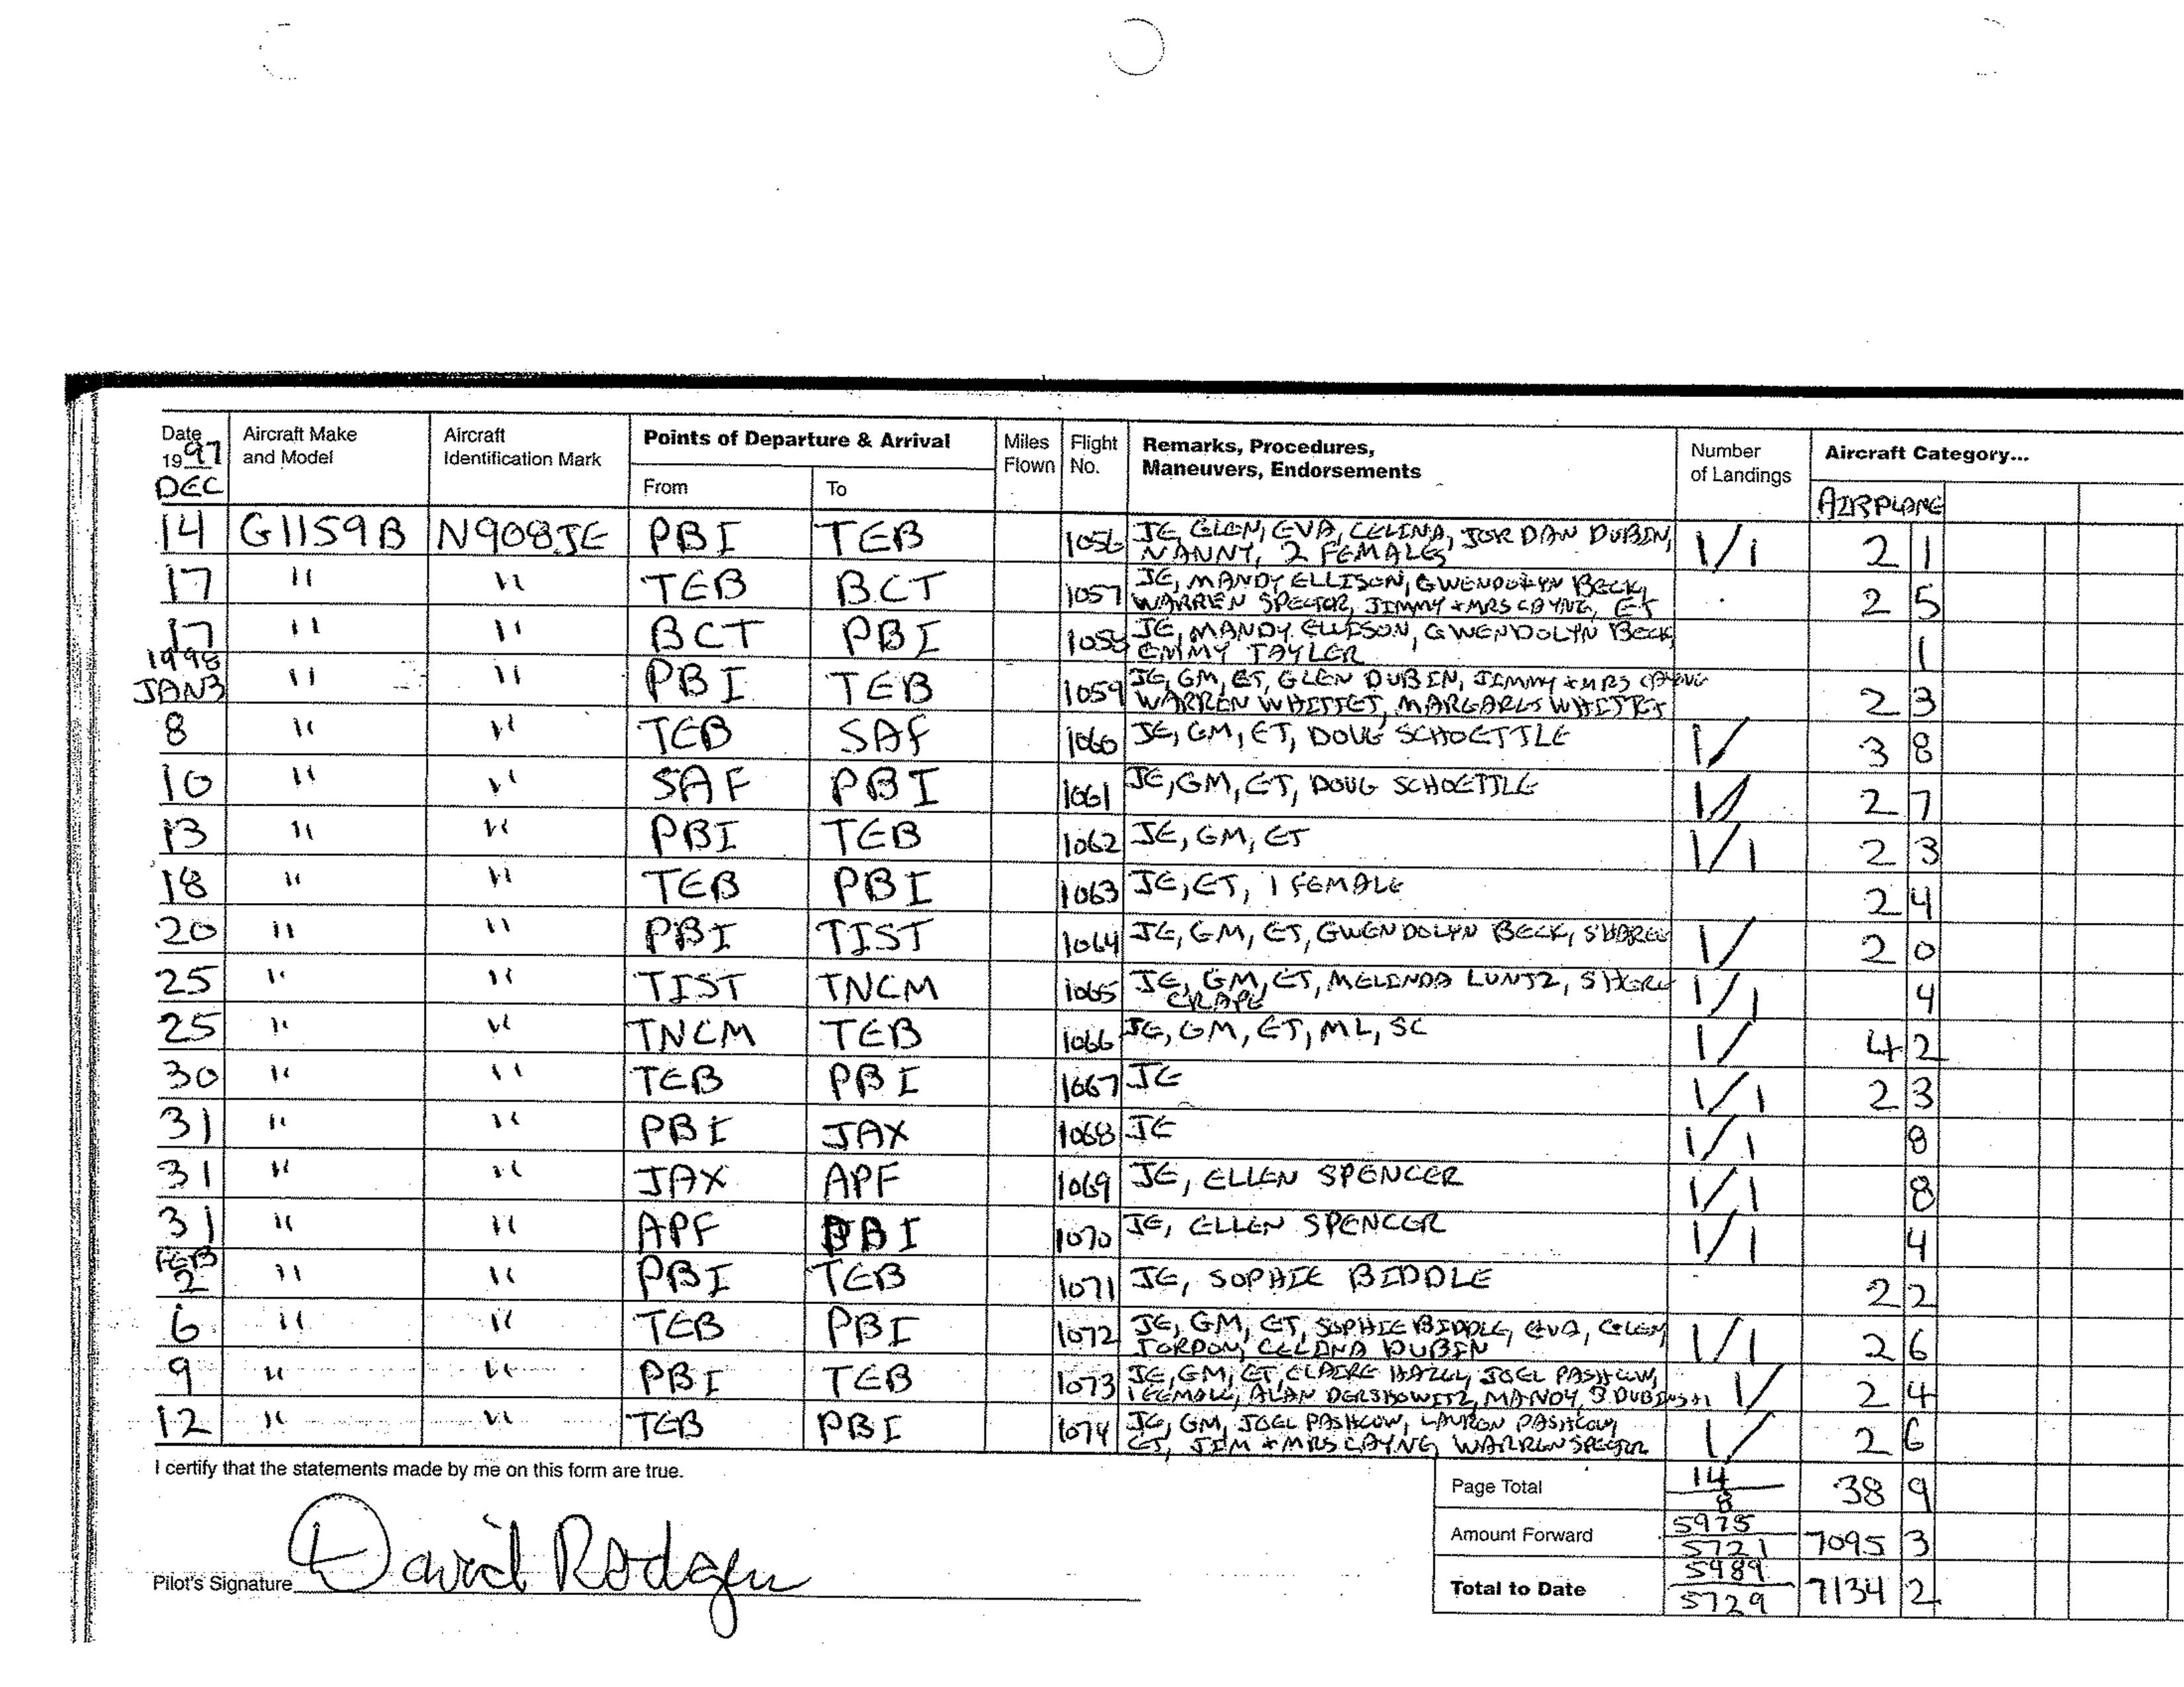 Date 1997 DEC Aircraft Make and Model Aircraft Identification Mark Points of Departure & Arrival From To Miles Flown Flight No. Remarks, Procedures, Maneuvers, Endorsements Number of Landings Aircraft Category... AIRPLANE
14 G1159B N908JE PBI TEB 1056 JE, GLEN, EVA, CELINA, JORDAN DUBIN, 1/1 2 1
NANNY, 2 FEMALES
17 " " TEB BCT 1057 JE, MANDY ELLISON, GWENDOLYN BECK, 2 5
WARREN SPECTOR, JIMMY + MRS CAYNE, ET
17 " " BCT PBI 1058 JE, MANDY ELLISON, GWENDOLYN BECK, 1
EMMY TAYLER
1998
JAN 3 " " PBI TEB 1059 JE, GM, ET, GLEN DUBIN, JIMMY + MRS CAYNE 2 3
WARREN WHITTET, MARGARET WHITTET
8 " " TEB SAF 1060 JE, GM, ET, DOUG SCHOETTLE 1/ 3 8
10 " " SAF PBI 1061 JE, GM, ET, DOUG SCHOETTLE 1/ 2 7
13 " " PBI TEB 1062 JE, GM, ET 1/1 2 3
18 " " TEB PBI 1063 JE, ET, 1 FEMALE 2 4
20 " " PBI TIST 1064 JE, GM, ET, GWENDOLYN BECK, 1/ 2 0
25 " " TIST TNCM 1065 JE, GM, ET, MELINDA LUNTZ, 1/1 4
25 " " TNCM TEB 1066 JE, GM, ET, ML, SC 1/ 4 2
30 " " TEB PBI 1067 JE 1/1 2 3
31 " " PBI JAX 1068 JE 1/1 8
31 " " JAX APF 1069 JE, ELLEN SPENCER 1/1 8
31 " " APF PBI 1070 JE, ELLEN SPENCER 1/1 4
FEB
2 " " PBI TEB 1071 JE, SOPHIE BIDDLE 2 2
6 " " TEB PBI 1072 JE, GM, ET, SOPHIE BIDDLE, EVA, GLEN, 1/1 2 6
JORDON, CELINA DUBIN
9 " " PBI TEB 1073 JE, GM, ET, CLAIRE HAZEL, JOEL PASHCOW, 1/ 2 4
1 FEMALE, ALAN DERSHOWITZ, MANDY, 3 DUBINS + 1
12 " " TEB PBI 1074 JE, GM, JOEL PASHCOW, LAUREN PASHCOW, 1/ 2 6
ET, JIM + MRS CAYNE, WARREN SPECTOR
I certify that the statements made by me on this form are true.
Page Total 14 8 38 9
Amount Forward 5975 5721 7095 3
Total to Date 5989 5729 7134 2
Pilot's Signature David Rodgers